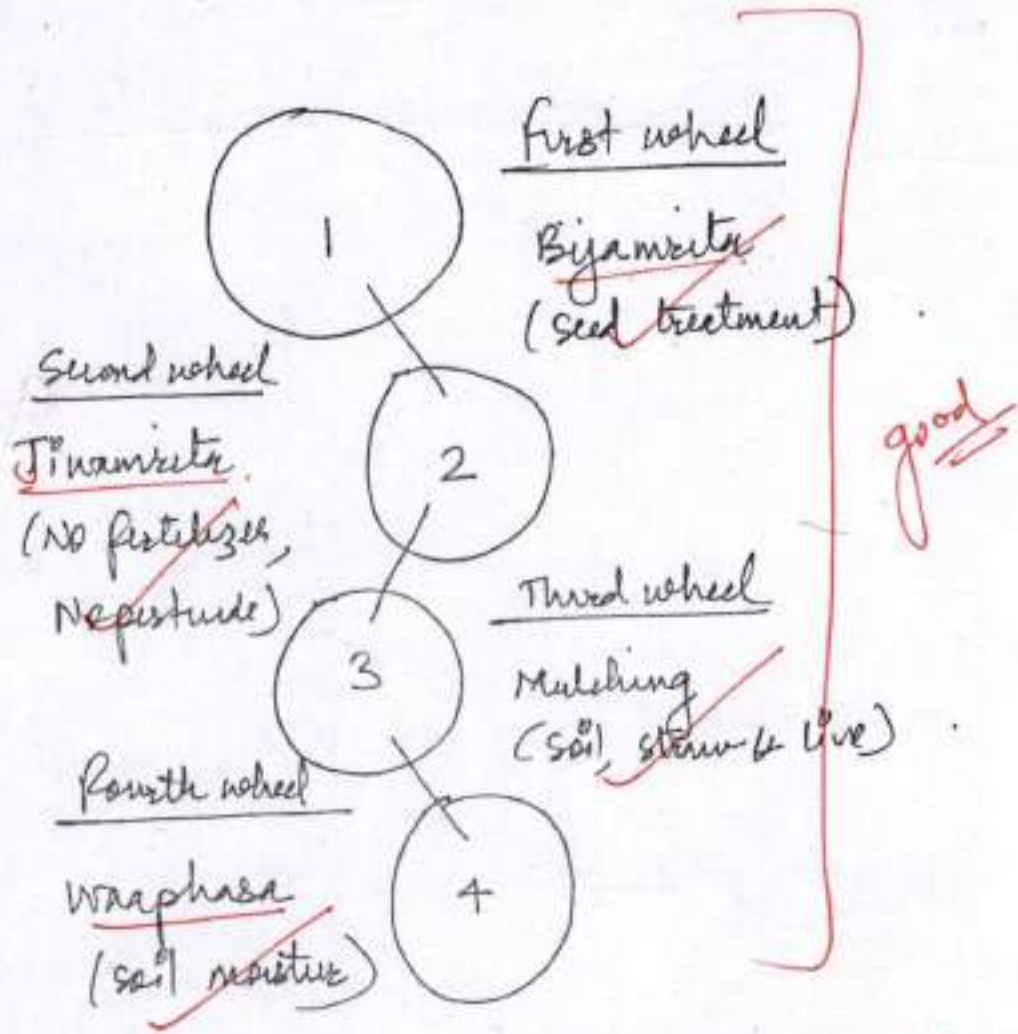 First wheel
1
Bijamrita
(seed treatment)
Second wheel
Jivamrita
(No fertilizer,
No pesticide)
2
good
Third wheel
3
Mulching
(soil, straw & live)
Fourth wheel
Waaphasa
(soil moistur)
4